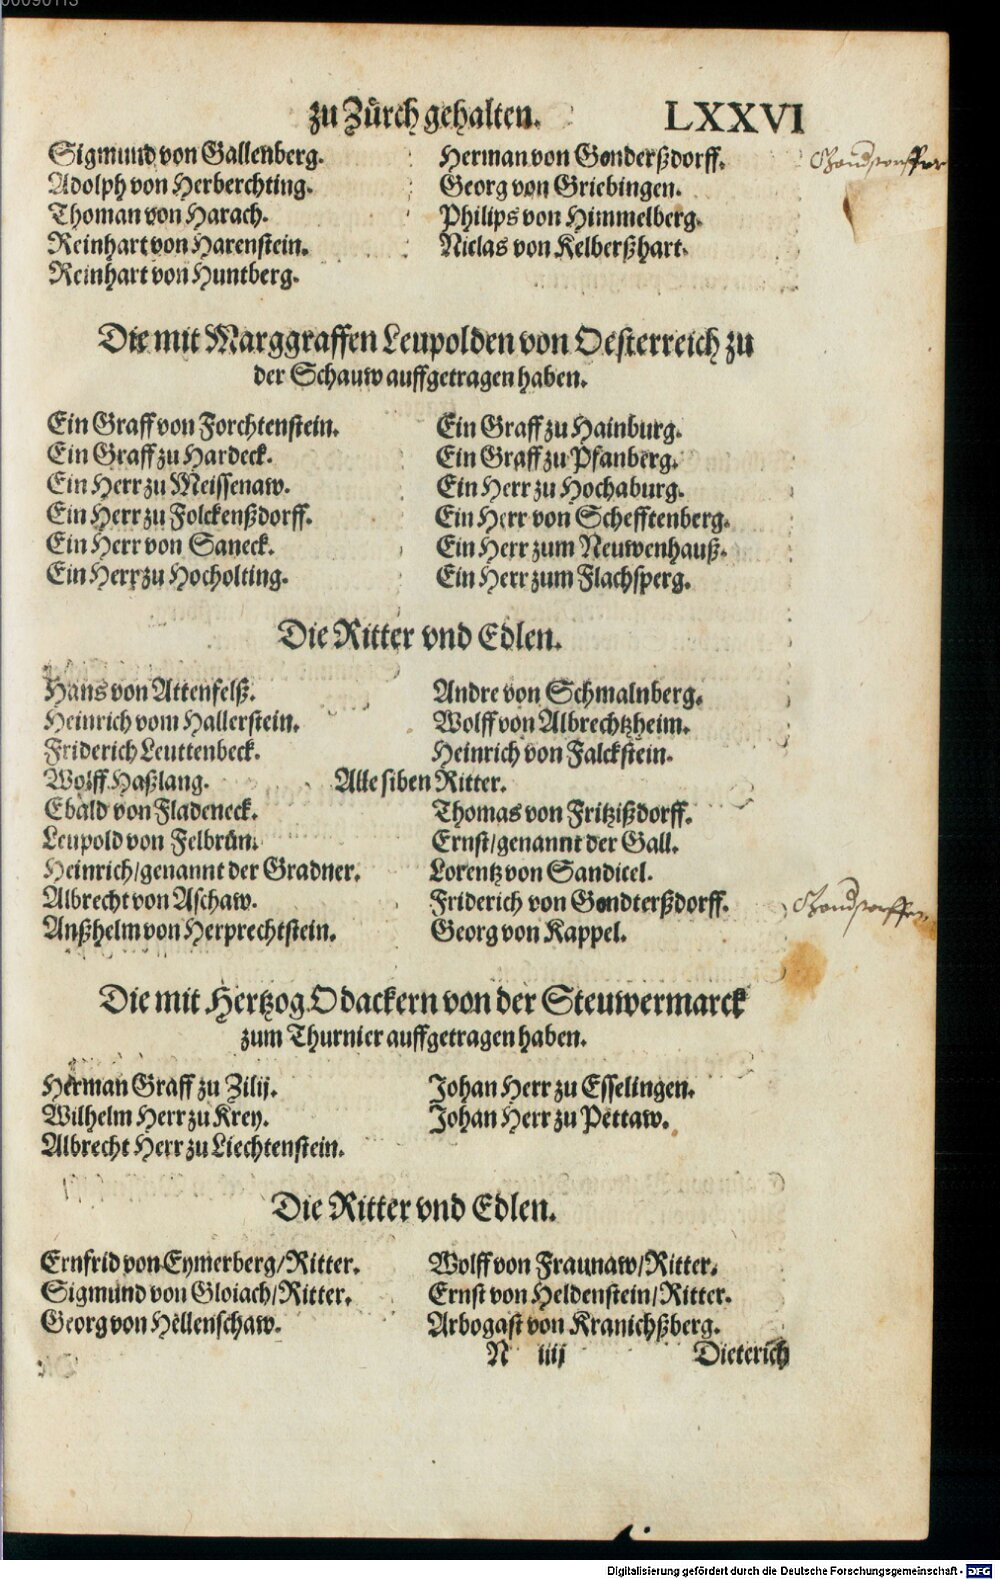 zu Zürch gehalten. LXXVI
Sigmund von Gallenberg.
Adolph von Herberchting.
Thoman von Harach.
Reinhart von Harenstein.
Reinhart von Huntberg.
Herman von Gonderßdorff.
Georg von Griebingen.
Philips von Himmelberg.
Niclas von Kelberßhart.
Die mit Marggraffen Leupolden von Oesterreich zu
der Schauw auffgetragen haben.
Ein Graff von Forchtenstein.
Ein Graff zu Hardeck.
Ein Herr zu Meissenaw.
Ein Herr zu Folckenßdorff.
Ein Herr von Saneck.
Ein Herr zu Hocholting.
Ein Graff zu Hainburg.
Ein Graff zu Pfanberg.
Ein Herr zu Hochaburg.
Ein Herr von Schefftenberg.
Ein Herr zum Neuwenhauß.
Ein Herr zum Flachsperg.
Die Ritter vnd Edlen.
Hans von Attenfelß.
Heinrich vom Hallerstein.
Friderich Leuttenbeck.
Wolff Haßlang.
Andre von Schmalnberg.
Wolff von Albrechtzheim.
Heinrich von Falckstein.
Alle siben Ritter.
Ebald von Fladeneck.
Leupold von Felbrün.
Heinrich/genannt der Gradner.
Albrecht von Aschaw.
Anßhelm von Herprechtstein.
Thomas von Fritzißdorff.
Ernst/genannt der Gall.
Lorentz von Sanditel.
Friderich von Gondterßdorff.
Georg von Kappel.
Die mit Hertzog Odackern von der Steuwermarck
zum Thurnier auffgetragen haben.
Herman Graff zu Zilij.
Wilhelm Herr zu Krey.
Albrecht Herr zu Liechtenstein.
Johan Herr zu Esselingen.
Johan Herr zu Pettaw.
Die Ritter vnd Edlen.
Ernfrid von Eymerberg/Ritter.
Sigmund von Gloiach/Ritter.
Georg von Hellenschaw.
Wolff von Fraunaw/Ritter.
Ernst von Heldenstein/Ritter.
Arbogast von Kranichßberg.
N iiij Dieterich
Digitalisierung gefördert durch die Deutsche Forschungsgemeinschaft - DFG